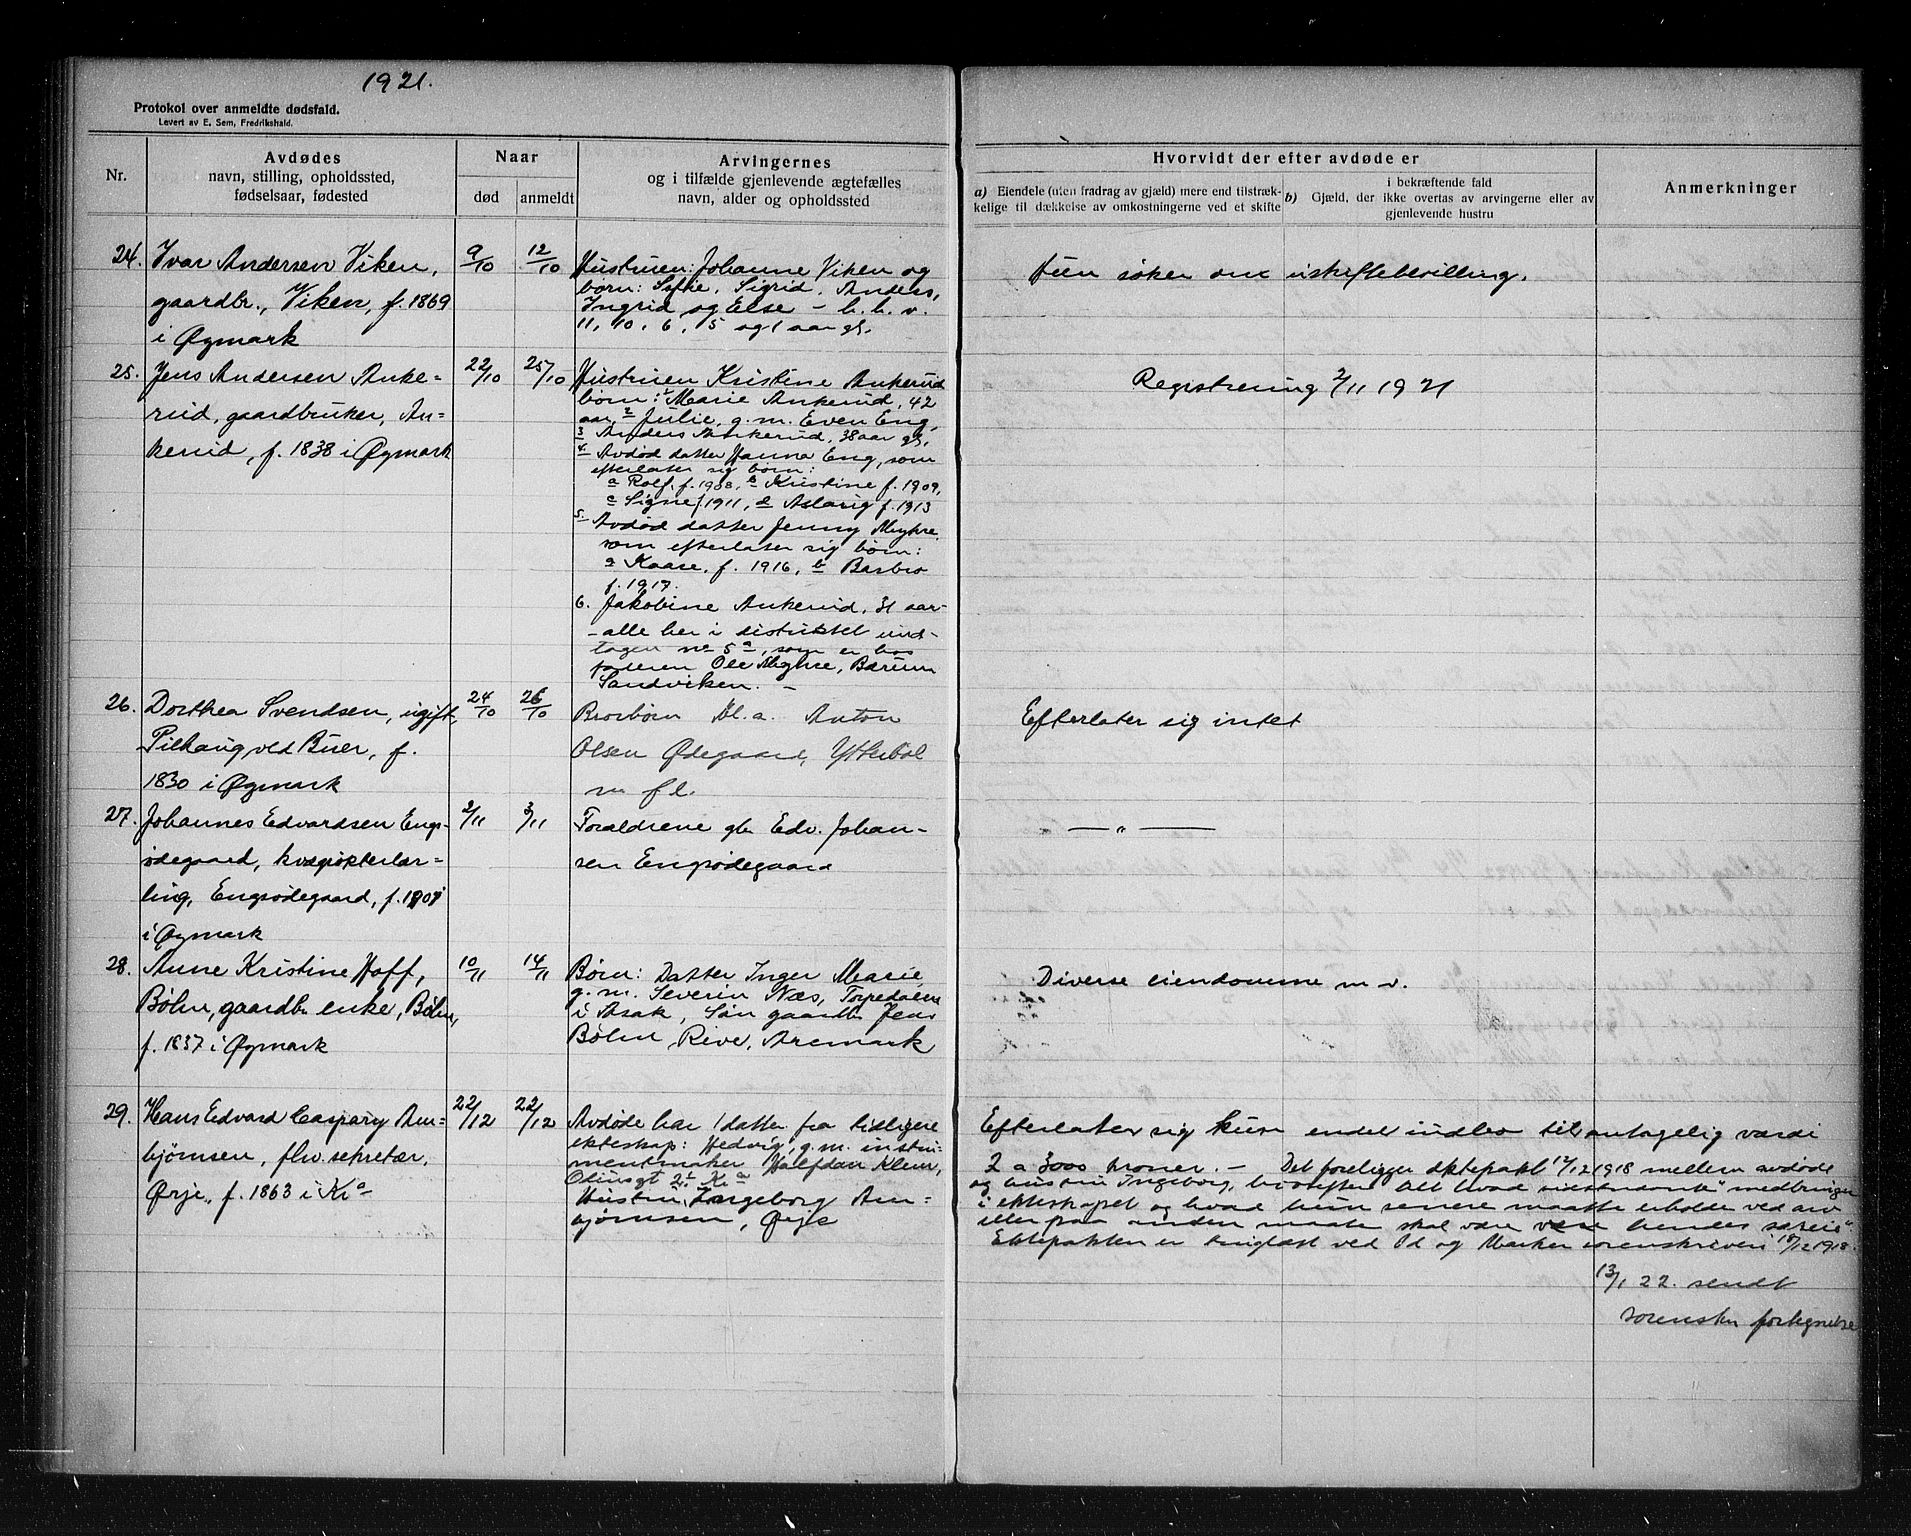 1921.
Protokol over anmeldte dødsfald.
Levert av E. Sem, Fredrikshald.
Nr.
Avdødes
navn, stilling, opholdssted,
fødselsaar, fødested
Naar
død
anmeldt
Arvingernes
og i tilfælde gjenlevende ægtefælles
navn, alder og opholdssted
Hvorvidt der efter avdøde er
a) Eiendele (uten fradrag av gjæld) mere end tilstræk-
kelige til dækkelse av omkostningerne ved et skifte
i bekræftende fald
b) Gjæld, der ikke overtas av arvingerne eller av
gjenlevende hustru
Anmerkninger
24. Ivar Andersen Viken,
gaardbr., Viken, f. 1869
i Øymark
9/10
12/10
Hustruen: Johanne Viken og
børn: Sofie, Sigrid, Anders,
Ingrid og Else – h. h. v.
11, 10, 6, 5 og 1 aar gl.
Hun søker om uskiftebevilling.
25. Jens Andersen Anke-
rud, gaardbruker, An-
kerud, f. 1838 i Øymark
22/10
25/10
Hustruen Kristine Ankerud
børn: 1 Marie Ankerud, 42
aar, 2 Julie, g. m. Even Eng,
3 Anders Ankerud, 38 aar gl.
4. Avdød datter Hanna Eng, som
efterlater sig børn:
a Rolf, f. 1908, b Kristine f. 1909,
c Signe f. 1911, d Aslaug f. 1913
5. Avdød datter Jenny Myhre,
som efterlater sig børn:
a Kaare, f. 1916, b Barbro
f. 1917.
6. Jakobine Ankerud, 31 aar-
- alle her i distriktet und-
tagen nr 5a, som er hos
faderen Ole Myhre, Bærum
Sandviken. –
Registrering 2/11 1921
26. Dorthea Svendsen, ugift,
Pilhaug ved Buer, f.
1830 i Øymark
24/10
26/10
Brorbørn bl. a. Anton
Olsen Ødegaard, Ytterbøl
m fl.
Efterlater sig intet
27. Johannes Edvardsen Engs-
ødegaard, kvægrøkterlær-
ling, Engsødegaard, f. 1907
i Øymark
2/11
3/11
Forældrene gbr Edv. Johan-
sen Engsødegaard
— „ —
28. Anne Kristine Hoff,
Bøhn, gaardbr enke, Bøhn,
f. 1837 i Øymark
10/11
14/11
Børn: Datter Inger Marie,
g. m. Severin Næs, Torpedalen
i Asak, Søn gaardbr Jens
Bøhn, Rive, Aremark
Diverse eiendomme m v.
29. Hans Edvard Caspary Am-
bjørnsen, fhv. sekretær,
Ørje, f. 1863 i Kra
22/12
22/12
Avdøde har 1 datter fra tidligere
ekteskap: Hedvig, g. m. instru-
mentmaker Halfdan Klem,
Olausgt 2I Kra
Hustru Ingeborg Am-
bjørnsen, Ørje
Efterlater sig kun endel indbo til antagelig værdi
2 a 3000 kroner. – Det foreligger ektepakt 12/12 1918 mellem avdøde
og hustru Ingeborg, hvorefter "alt hvad sidstnævnte medbringer
i ekteskapet og hvad hun senere maatte erholde ved arv
eller paa anden maate skal være være hendes særeie"
Ektepakten er tinglæst ved Id og Marker sorenskriveri 18/12 1918.
13/1 22. sendt
sorenskr fortegnelse